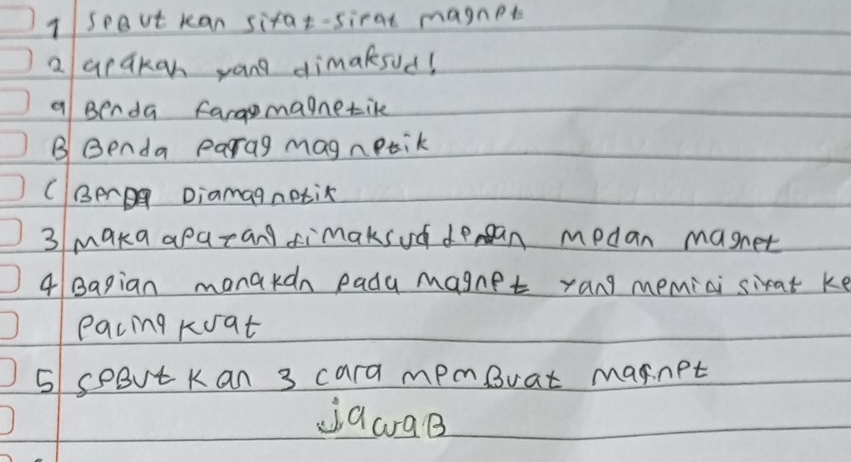 1 SeBut kan sifat-sifat magnet
2 apakah yang dimaksud!
a Benda faragomagnetik
B Benda parag magnetik
C Benda Diamagnetik
3 maka apa yang dimaksud dengan medan magnet
4 Bagian manakah pada magnet yang memiai sifat ke
pacing kuat
5 seBut kan 3 cara memBuat magnet
jawaB